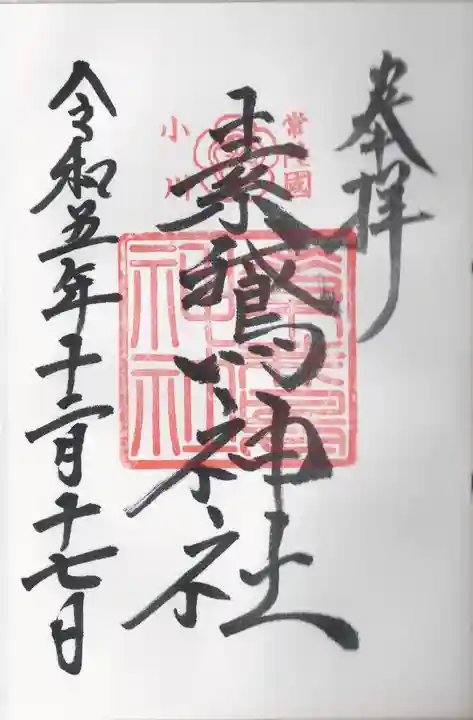 奉拝
常陸國
小川
素鵞神社
素鵞神社
令和五年十二月十七日